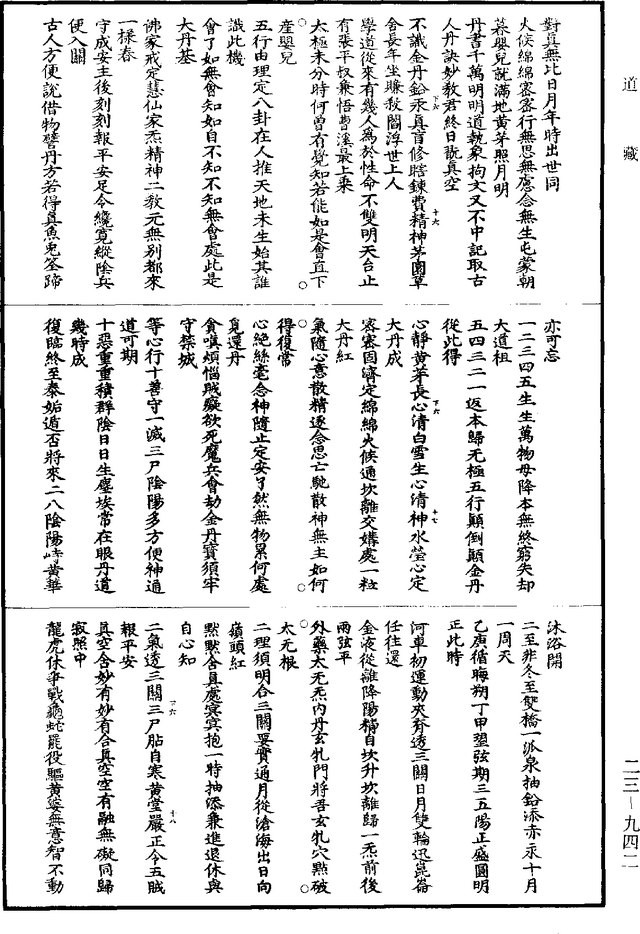 道藏
對真無比日月年時出世同
火候綿綿密密行無思無慮念無生屯蒙朝
暮嬰兒就滿地黃芽照月明
丹書千萬明明道執象拘文又不中記取古
人丹訣妙教君終日翫真空
不識金丹鉛汞真盲修瞎鍊費精神茅園草
舍長年坐賺殺閻浮世上人
學道從來有幾人為於性命不雙明天台止
有張平叔兼悟曹溪最上乘
太極未分時何曾有覺知若能如是會直下
產嬰兒
五行由理定八卦在人推天地未生始其誰
識此機
會了如無會知如自不知不知無會處此是
大丹基
佛家戒定慧仙家炁精神二教元無別都來
一樣春
守成安主後刻刻報平安足令纔寬縱陰兵
便入關
古人方便說借物譬丹方若得真魚兔筌蹄
亦可忘
一二三四五生生萬物母降本無終窮失却
大道祖
五四三二一返本歸无極五行顛倒顛金丹
從此得
心靜黃芽長心清白雪生心清神水瑩心定
大丹成
密密固濟定綿綿火候通坎離交媾處一粒
大丹紅
氣隨心意散精逐念思亡馳散神無主如何
得復常
心絕絲毫念神隨止定安了然無物累何處
覓還丹
貪嗔煩惱賊癡欲死魔兵會劫金丹寶須牢
守禁城
等心行十善守一滅三尸陰陽多方便神通
道可期
十惡重重積群陰日日生塵埃常在眼丹道
幾時成
復臨終至泰姤遁否將來二八陰陽時黃華
沐浴開
二至非冬至雙橋一派泉抽鉛添赤汞十月
一周天
乙庚循晦朔丁甲望弦期三五陽正盛圓明
正此時
河車初運動夾脊透三關日月雙輪迅崑崙
任往還
金液從離降陽精自坎升坎離歸一炁前後
兩弦平
外藥太无炁內丹玄牝門將吾玄牝穴點破
太无根
二理須明合三關要實通月從滄海出日向
嶺頭紅
默默含真處冥冥抱一時抽添兼進退休與
自心知
二氣透三關三尸貼自寒黃堂嚴正令五賊
報平安
真空含妙有妙有合真空空有融無礙同歸
寂照中
龍虎休爭戰龜蛇罷役驅黃婆無意智不動
二三—九四二